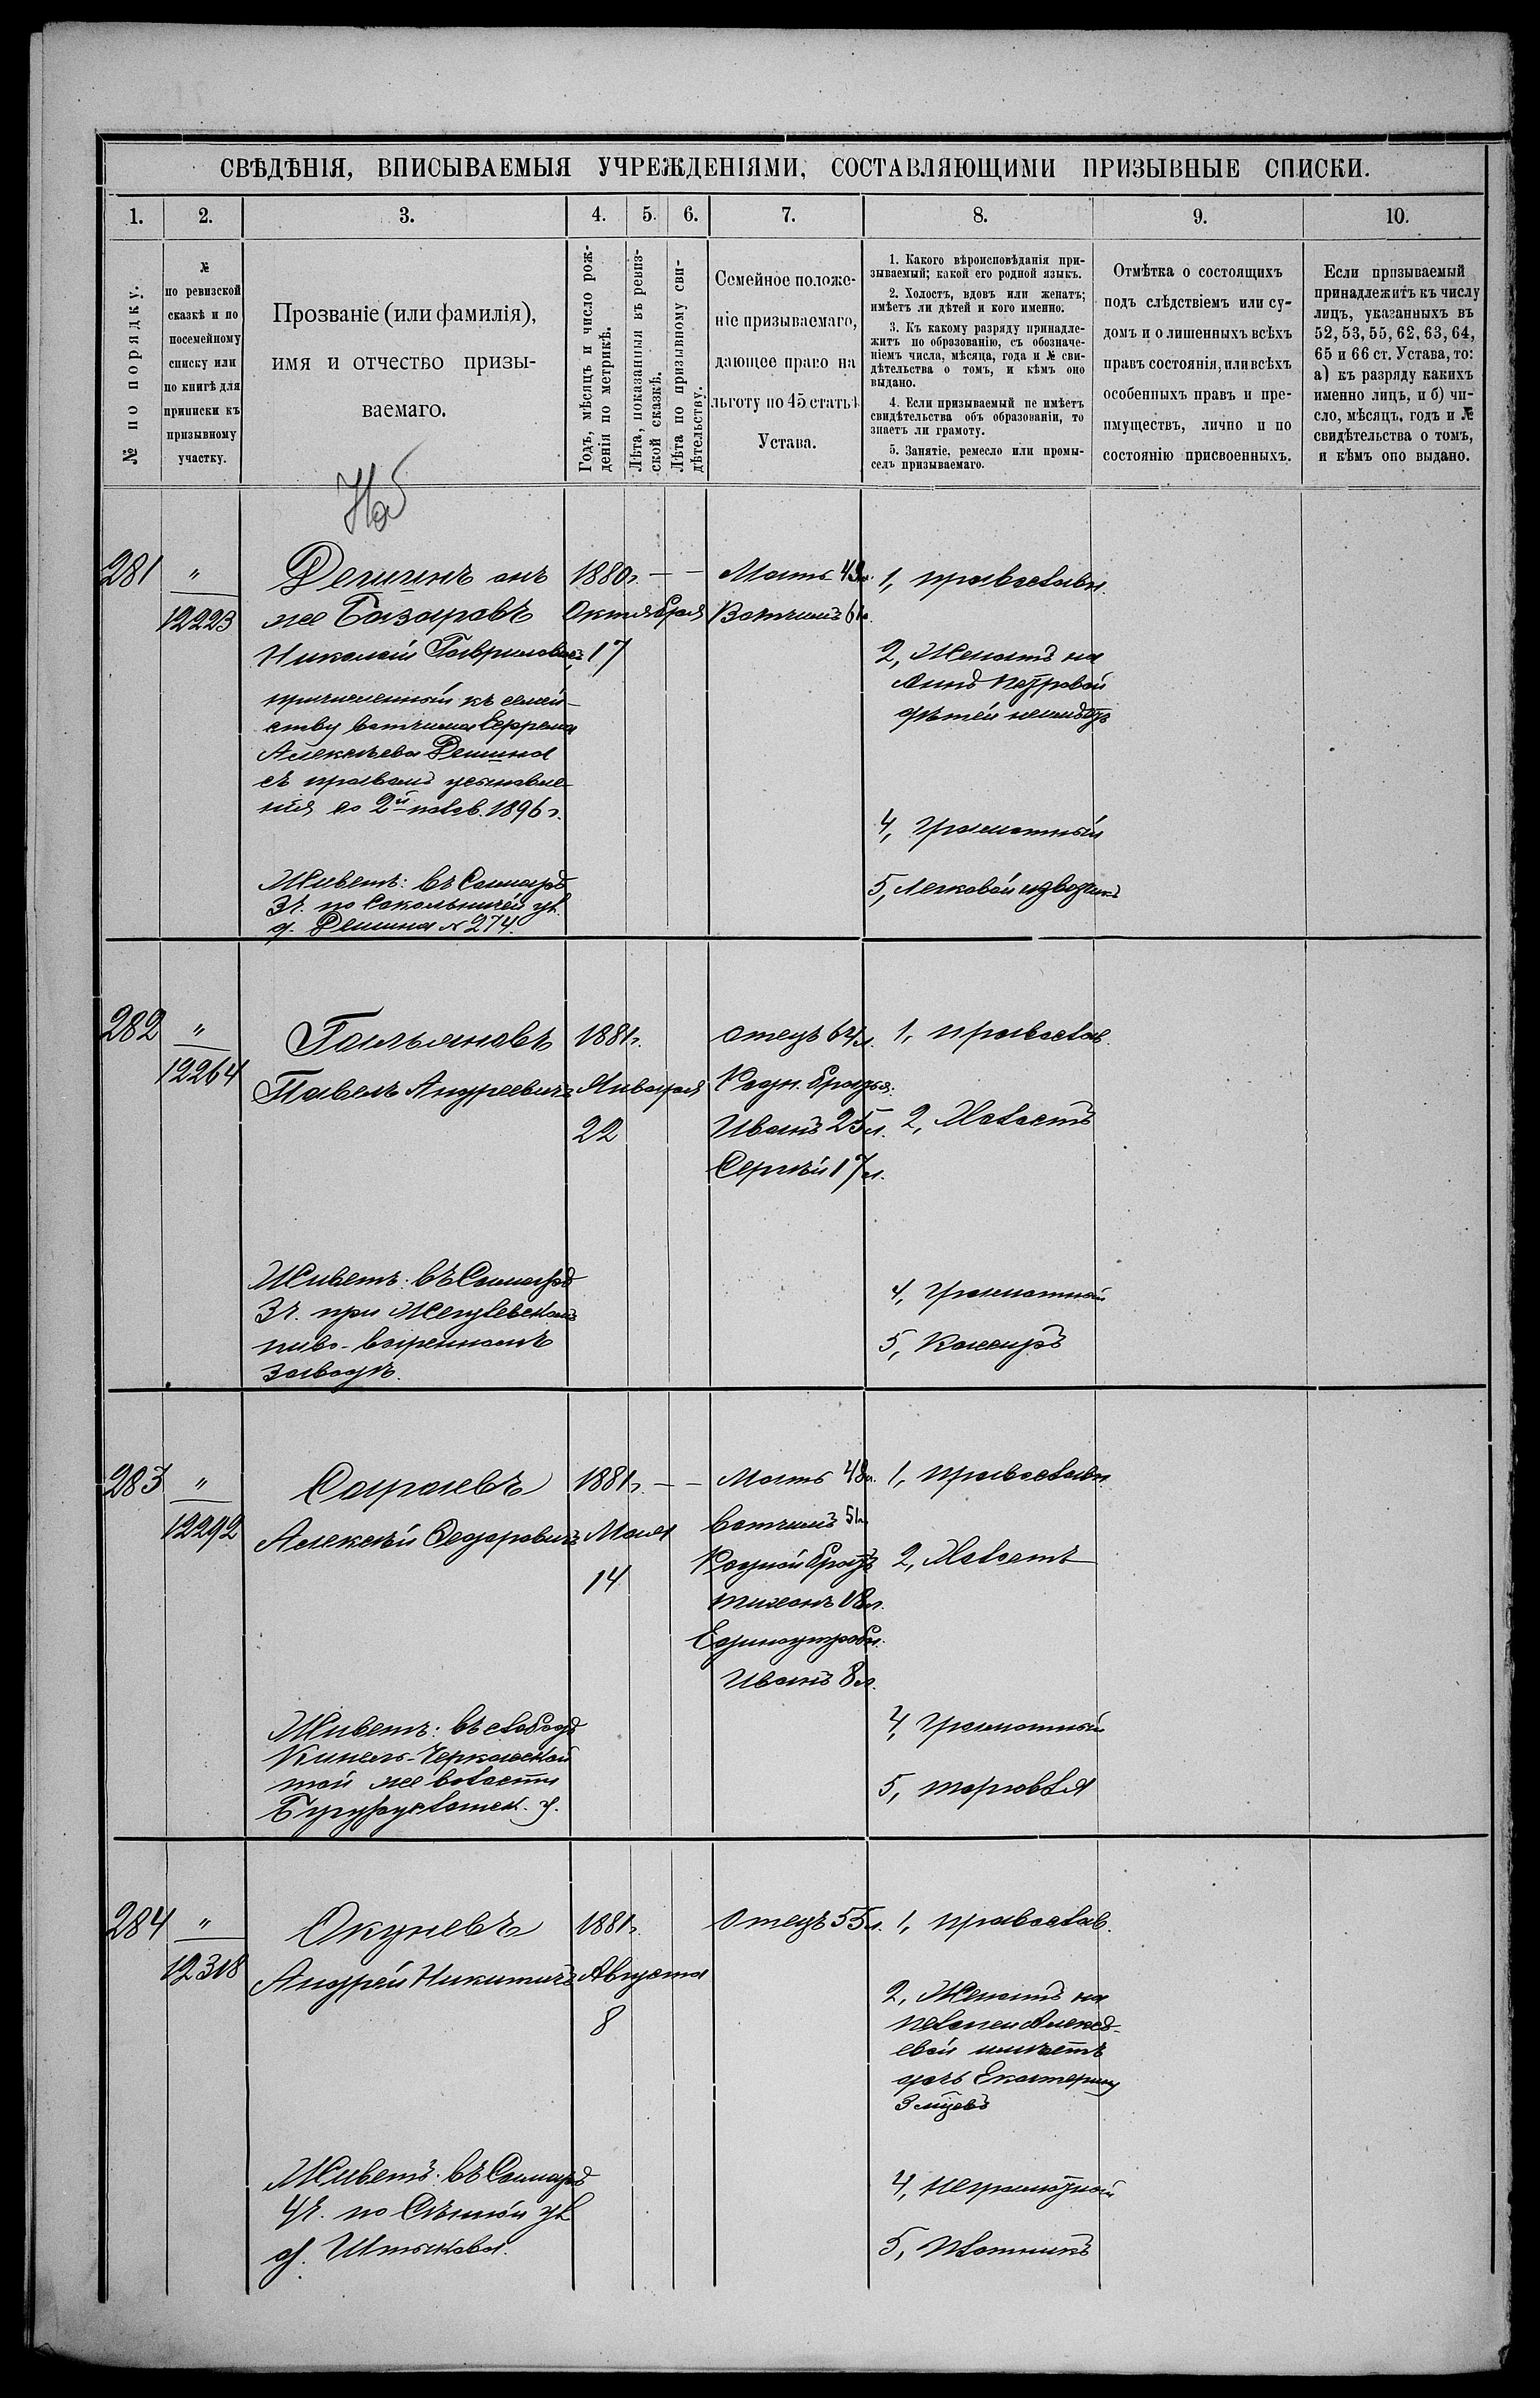 СВѢДѢНІЯ, ВПИСЫВАЕМЫЯ УЧРЕЖДЕНІЯМИ, СОСТАВЛЯЮЩИМИ ПРИЗЫВНЫЕ СПИСКИ.
1. 2. 3. 4. 5. 6. 7. 8. 9. 10.
№ по порядку.
№
по ревизской
сказкѣ и по
посемейному
списку или
по книгѣ для
приписки къ
призывному
участку.
Прозваніе (или фамилія),
имя и отчество призы-
ваемаго.
Годъ, мѣсяцъ и число рож-
денія по метрикѣ.
Лѣта, показанныя въ ревиз-
ской сказкѣ.
Лѣта по призывному сви-
дѣтельству.
Семейное положе-
ніе призываемаго,
дающее право на
льготу по 45 статьѣ
Устава.
1. Какого вѣроисповѣданія при-
зываемый; какой его родной языкъ.
2. Холостъ, вдовъ или женатъ;
имѣетъ ли дѣтей и кого именно.
3. Къ какому разряду принадле-
житъ по образованію, съ обозначе-
ніемъ числа, мѣсяца, года и № сви-
дѣтельства о томъ, и кѣмъ оно
выдано.
4. Если призываемый не имѣетъ
свидѣтельства объ образованіи, то
знаетъ ли грамоту.
5. Занятіе, ремесло или промы-
селъ призываемаго.
Отмѣтка о состоящихъ
подъ слѣдствіемъ или су-
домъ и о лишенныхъ всѣхъ
правъ состоянія, или всѣхъ
особенныхъ правъ и пре-
имуществъ, лично и по
состоянію присвоенныхъ.
Если призываемый
принадлежитъ къ числу
лицъ, указанныхъ въ
52, 53, 55, 62, 63, 64,
65 и 66 ст. Устава, то:
а) къ разряду какихъ
именно лицъ, и б) чи-
сло, мѣсяцъ, годъ и №
свидѣтельства о томъ,
и кѣмъ оно выдано.
281
"
12223
Демшинъ онъ
же Базаровъ
Николай Гавриловъ
причисленный къ семей-
ству вотчима Ефрема
Алексѣева Демшина
съ правомъ усыновле-
нія со 2й полов. 1896 г.
Живетъ: въ Самарѣ
3ч. по Сокольничей ул.
д. Демшина № 274.
1880г. — —
Октября
17
Мать 49л.
Вотчимъ 61л.
1, православн.
2, Женатъ на
Аннѣ Петровой
дѣтей неимѣетъ
4, Грамотный
5, Легковой извозчикъ
282
"
12264
Гальяновъ
Павелъ Андреевичъ
Живетъ: въ Самарѣ
3ч. при Жегулевскомъ
пиво-варенномъ
заводѣ.
1881г.
Января
22
отецъ 64л.
Родн. братья:
Иванъ 25л.
Сергѣй 17л.
1, православ.
2, Холостъ
4, Грамотный
5, Кассиръ
283
"
12292
Сараевъ
Алексѣй Федоровичъ
Живетъ: въ слободѣ
Кинель-Черкасской
той же волости
Бугурусланск. у.
1881г. — —
Мая
14
Мать 48л.
вотчимъ 51л.
Родной братъ
Тихонъ 18л.
Единоутробн.
Иванъ 8л.
1, православн.
2, Холостъ
4, Грамотный
5, торговля
284
"
12318
Окуневъ
Андрей Никитичъ
Живетъ: въ Самарѣ
4ч. по Сѣнной ул.
д. Штыкова.
1881г.
Августа
8
Отецъ 55л.
1, православ.
2, Женатъ на
Пелагеи Алексѣ-
евой имѣетъ
дочь Екатерину
3 мѣсяцъ
4, неграмотной
5, Плотникъ